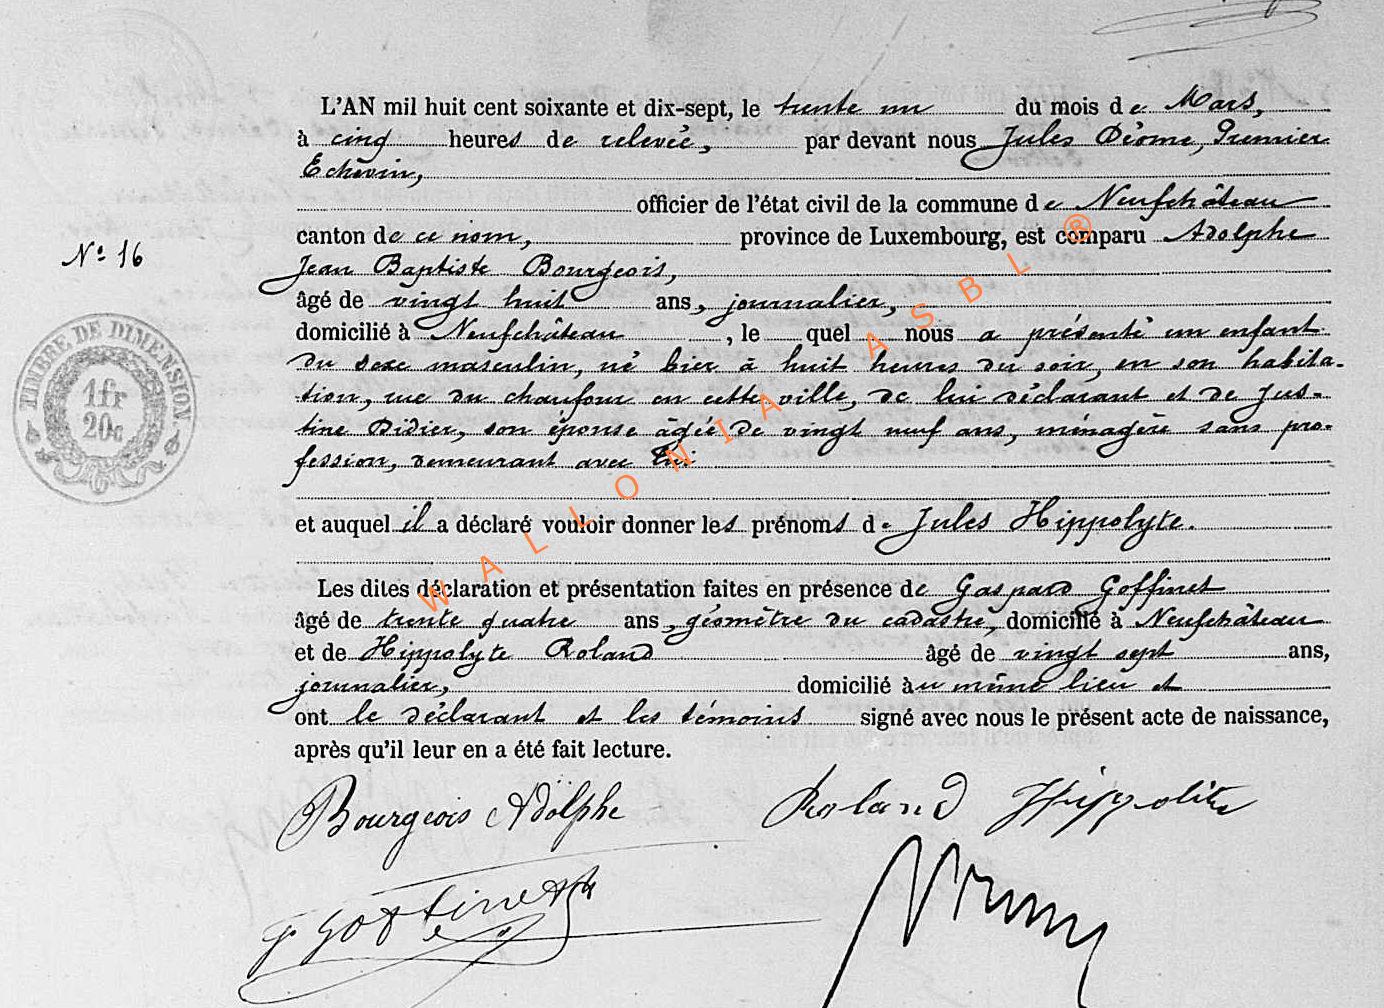 L'AN mil huit cent soixante et dix-sept, le trente un du mois de Mars,
à cinq heures de relevée, par devant nous Jules Dèome, Premier
Echevin,
officier de l'état civil de la commune de Neufchâteau
canton de ce nom, province de Luxembourg, est comparu Adolphe
N.o 16
Jean Baptiste Bourgeois,
âgé de vingt huit ans, journalier,
domicilié à Neufchâteau, le quel nous a présenté un enfant
du sexe masculin, né hier à huit heures du soir, en son habita-
tion, rue du chaufour en cette ville, de lui déclarant et de Jus-
tine Didier, son épouse âgée de vingt neuf ans, ménagère sans pro-
fession, demeurant avec lui
et auquel il a déclaré vouloir donner les prénoms de Jules Hippolyte.
Les dites déclaration et présentation faites en présence de Gaspard Goffinet
âgé de trente quatre ans, géomètre du cadastre, domicilié à Neufchâteau
et de Hippolyte Roland âgé de vingt sept ans,
journalier, domicilié au même lieu et
ont le déclarant et les témoins signé avec nous le présent acte de naissance,
après qu'il leur en a été fait lecture.
TIMBRE DE DIMENSION.
1fr
20c
WALLONIA ASBL ®
Bourgeois Adolphe Roland Hippolite
G Goffinet